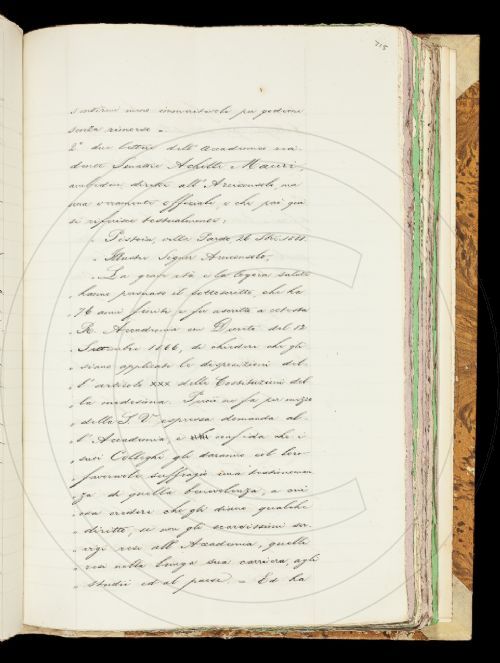 715
sentirsi meno immeritevole per goderne
senza rimorso.
2° due lettere dell'Accademico residente Senatore
dente Senatore Achille Mauri,
ambedue dirette all'Arciconsolo, ma
una veramente officiale e che però qui
si riferisce testualmente:
" Pistoia, villa Parda 26 Stbre 1881.
" Illustre Signor Arciconsolo,
" La grave età e la logora salute
" hanno persuaso il sottoscritto, che ha
" 76 anni forniti e fu ascritto a cotesta
" R. Accademia con Decreto del 12
" Settembre 1866, di chiedere che gli
" siano applicate le disposizioni del
" l'articolo XXX delle Costituzioni del
" la medesima. Perciò ne fa per mezzo
" della S. V. espressa domanda al
" l'Accademia, e confida che i
" suoi Colleghi gli daranno col loro
" favorevole suffragio una testimonian
" za di quella benevolenza, a cui
" osa credere che gli diano qualche
" diritto, se non gli scarsissimi ser
" vigi resi all'Accademia, quelli
" resi nella lunga sua carriera, agli
" studii ed al paese. = Ed ha